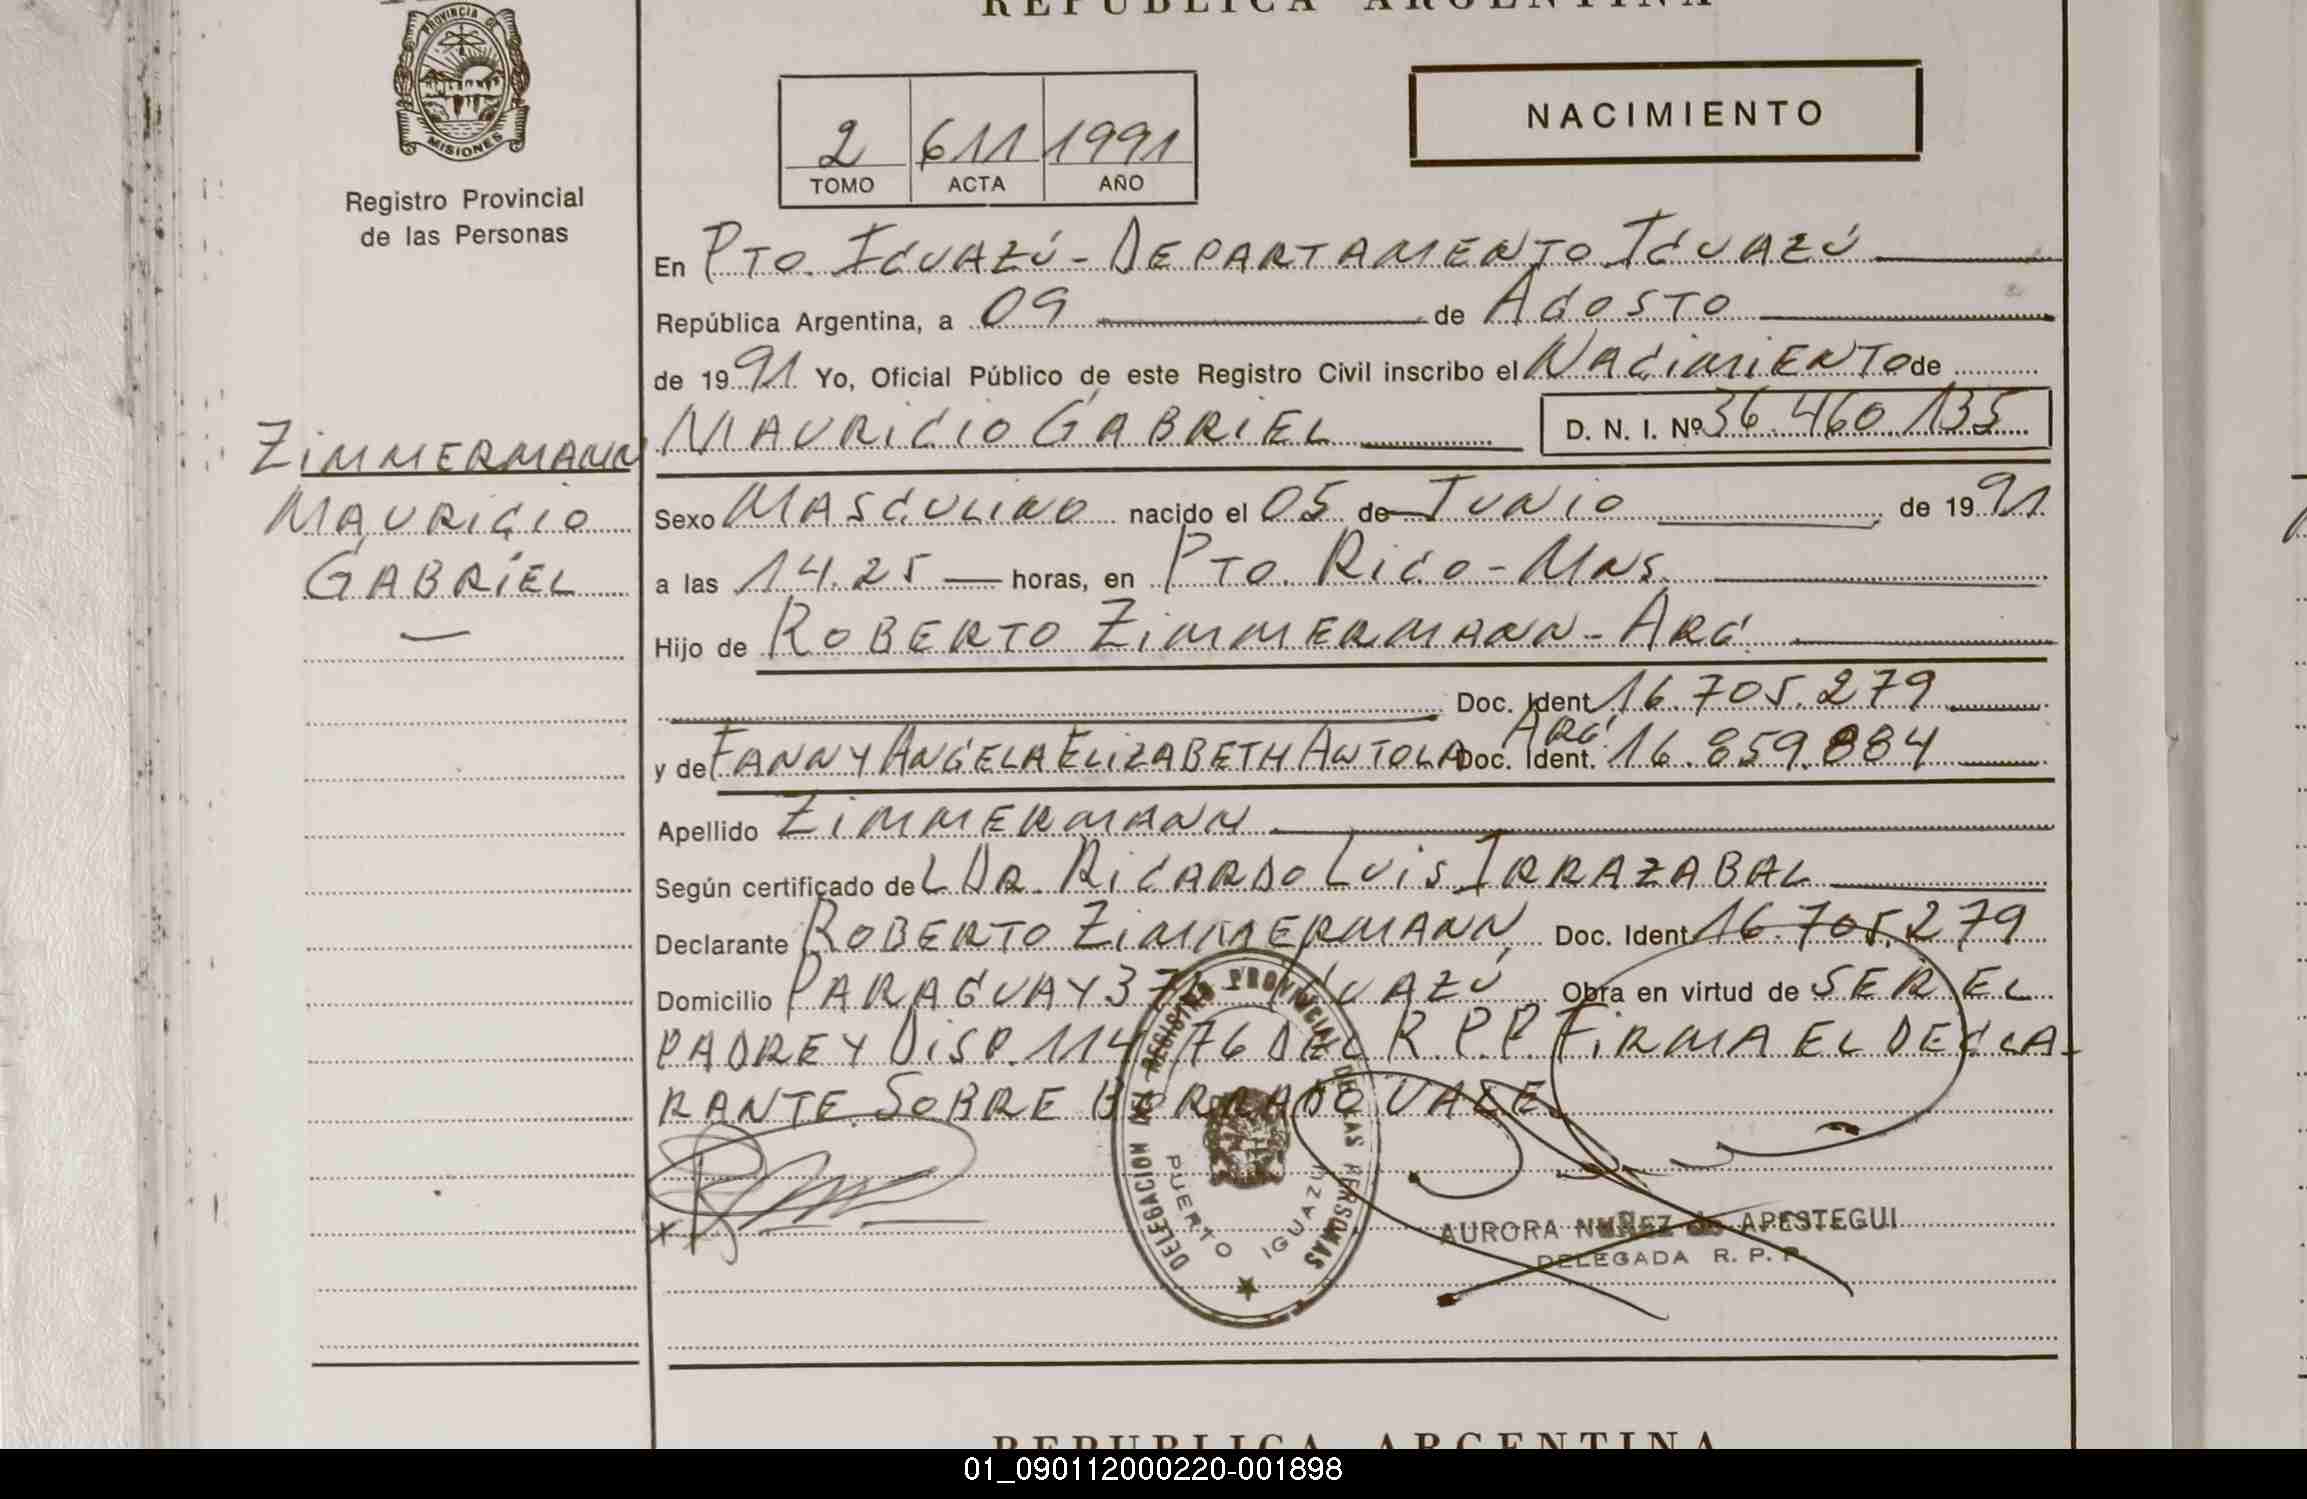 REPUBLICA ARGENTINA
PROVINCIA DE
MISIONES
Registro Provincial
de las Personas
NACIMIENTO
2 611 1991
TOMO ACTA AÑO
En PTO. IGUAZÚ - DEPARTAMENTO IGUAZÚ
República Argentina, a 09 de AGOSTO
de 1991 Yo, Oficial Público de este Registro Civil inscribo el NACIMIENTO de
MAURICIO GABRIEL D. N. I. Nº 36.460.135
ZIMMERMANN
MAURICIO
GABRIEL
Sexo MASCULINO nacido el 05 de JUNIO de 1991
a las 14.25 horas, en PTO. RICO - MNS.
Hijo de ROBERTO ZIMMERMANN - ARG.
Doc. Ident. 16.705.279
ARG.
y de FANNY ANGELA ELIZABETH ANTOLA Doc. Ident. 16.859.884
Apellido ZIMMERMANN
Según certificado de L DR. RICARDO LUIS IRRAZABAL
Declarante ROBERTO ZIMMERMANN Doc. Ident. 16.705.279
Domicilio PARAGUAY IGUAZÚ Obra en virtud de SER EL
PADRE Y DISP. 114 76 DEL R.P.P. FIRMA EL DECLA-
RANTE. SOBRE BORRADO VALE
DELEGACION DEL REGISTRO PROVINCIAL DE LAS PERSONAS
PUERTO IGUAZU
AURORA NUÑEZ de APESTEGUI
DELEGADA R. P. P.
REPUBLICA ARGENTINA
01_090112000220-001898